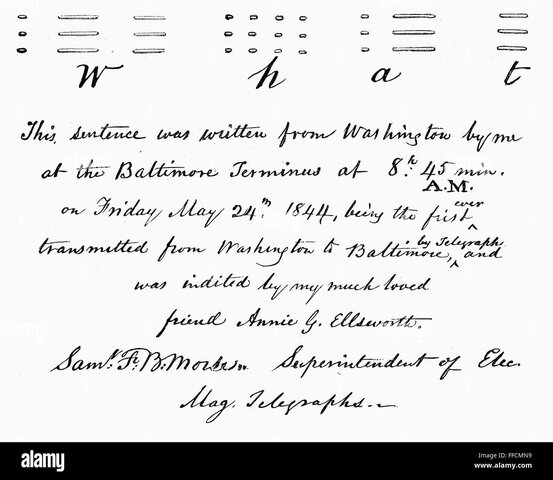 W h a t
This sentence was written from Washington by me
at the Baltimore Terminus at 8.h 45 min.
A.M.
on Friday May 24th 1844, being the first ^ever
transmitted from Washington to Baltimore, ^by Telegraph and
was indited by my much loved
friend Annie G. Ellsworth.
Saml. F. B. Morse. Superintendent of Elec.
Mag. Telegraphs.-
alamy stock photo
FFCMN9
www.alamy.com